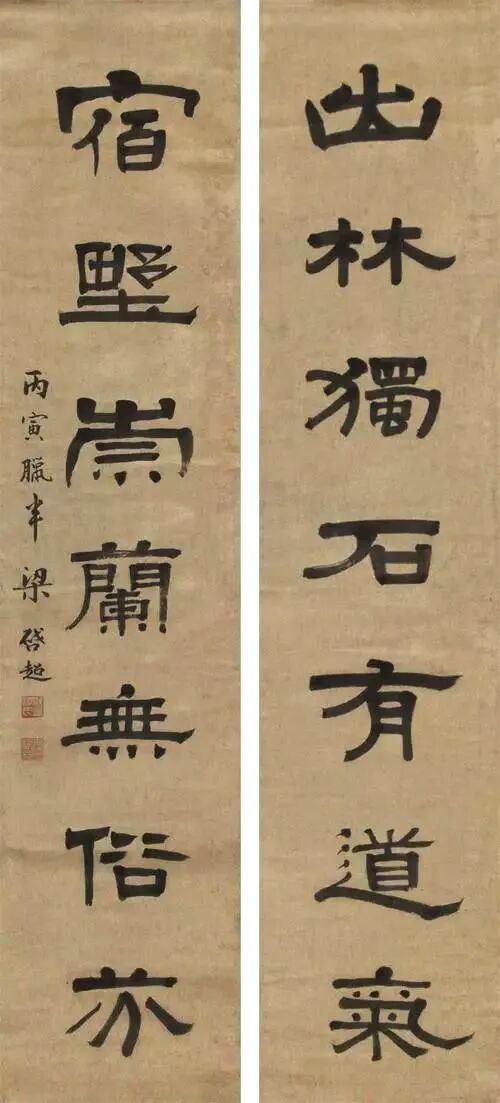 出林獨石有道氣
宿墅崇蘭無俗
丙寅臘半 梁啓超